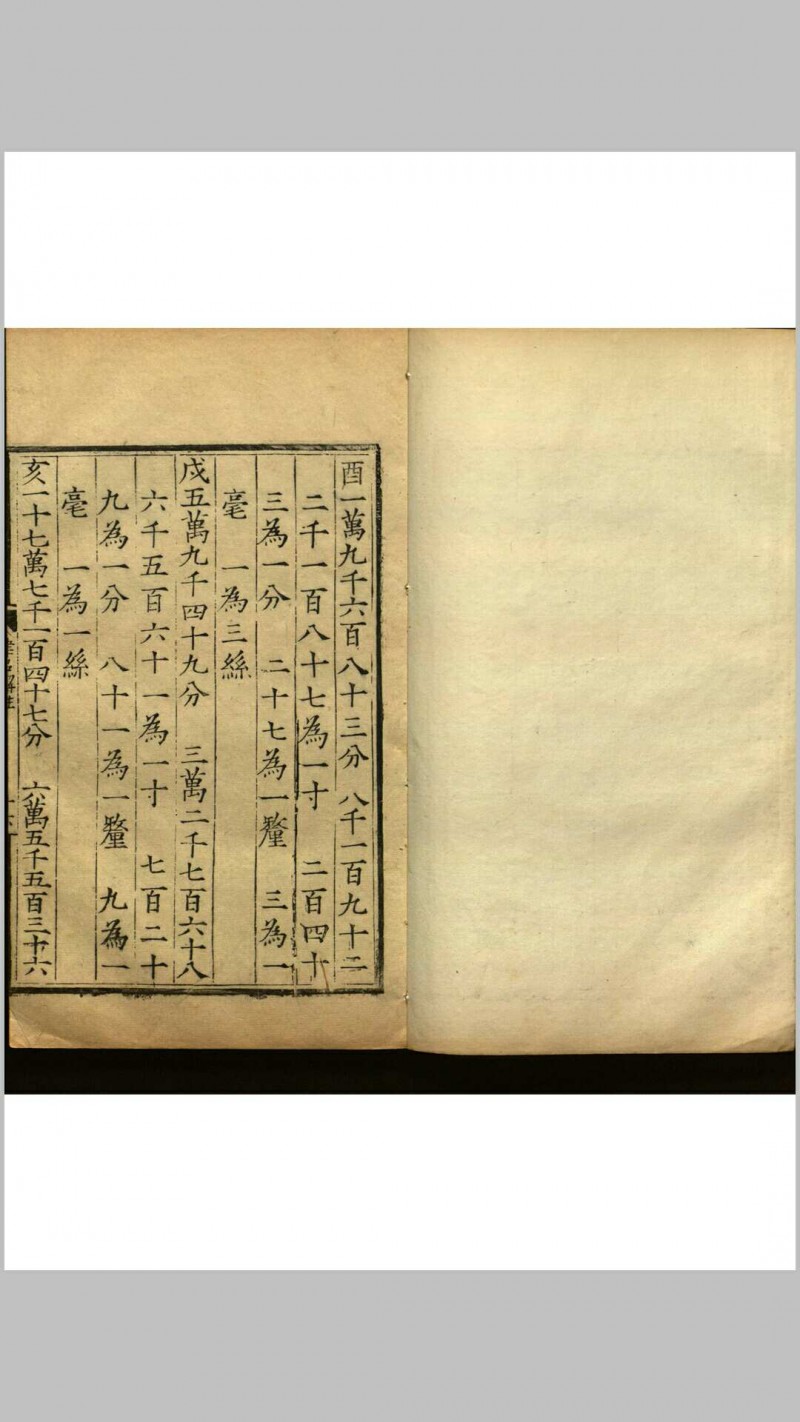 酉一萬九千六百八十三分 八千一百九十二
二千一百八十七為一寸 二百四十
三為一分 二十七為一釐 三為一
毫 一為三絲
戍五萬九千四十九分 三萬二千七百六十八
六千五百六十一為一寸 七百二十
九為一分 八十一為一釐 九為一
毫 一為一絲
亥一十七萬七千一百四十七分 六萬五千五百三十六